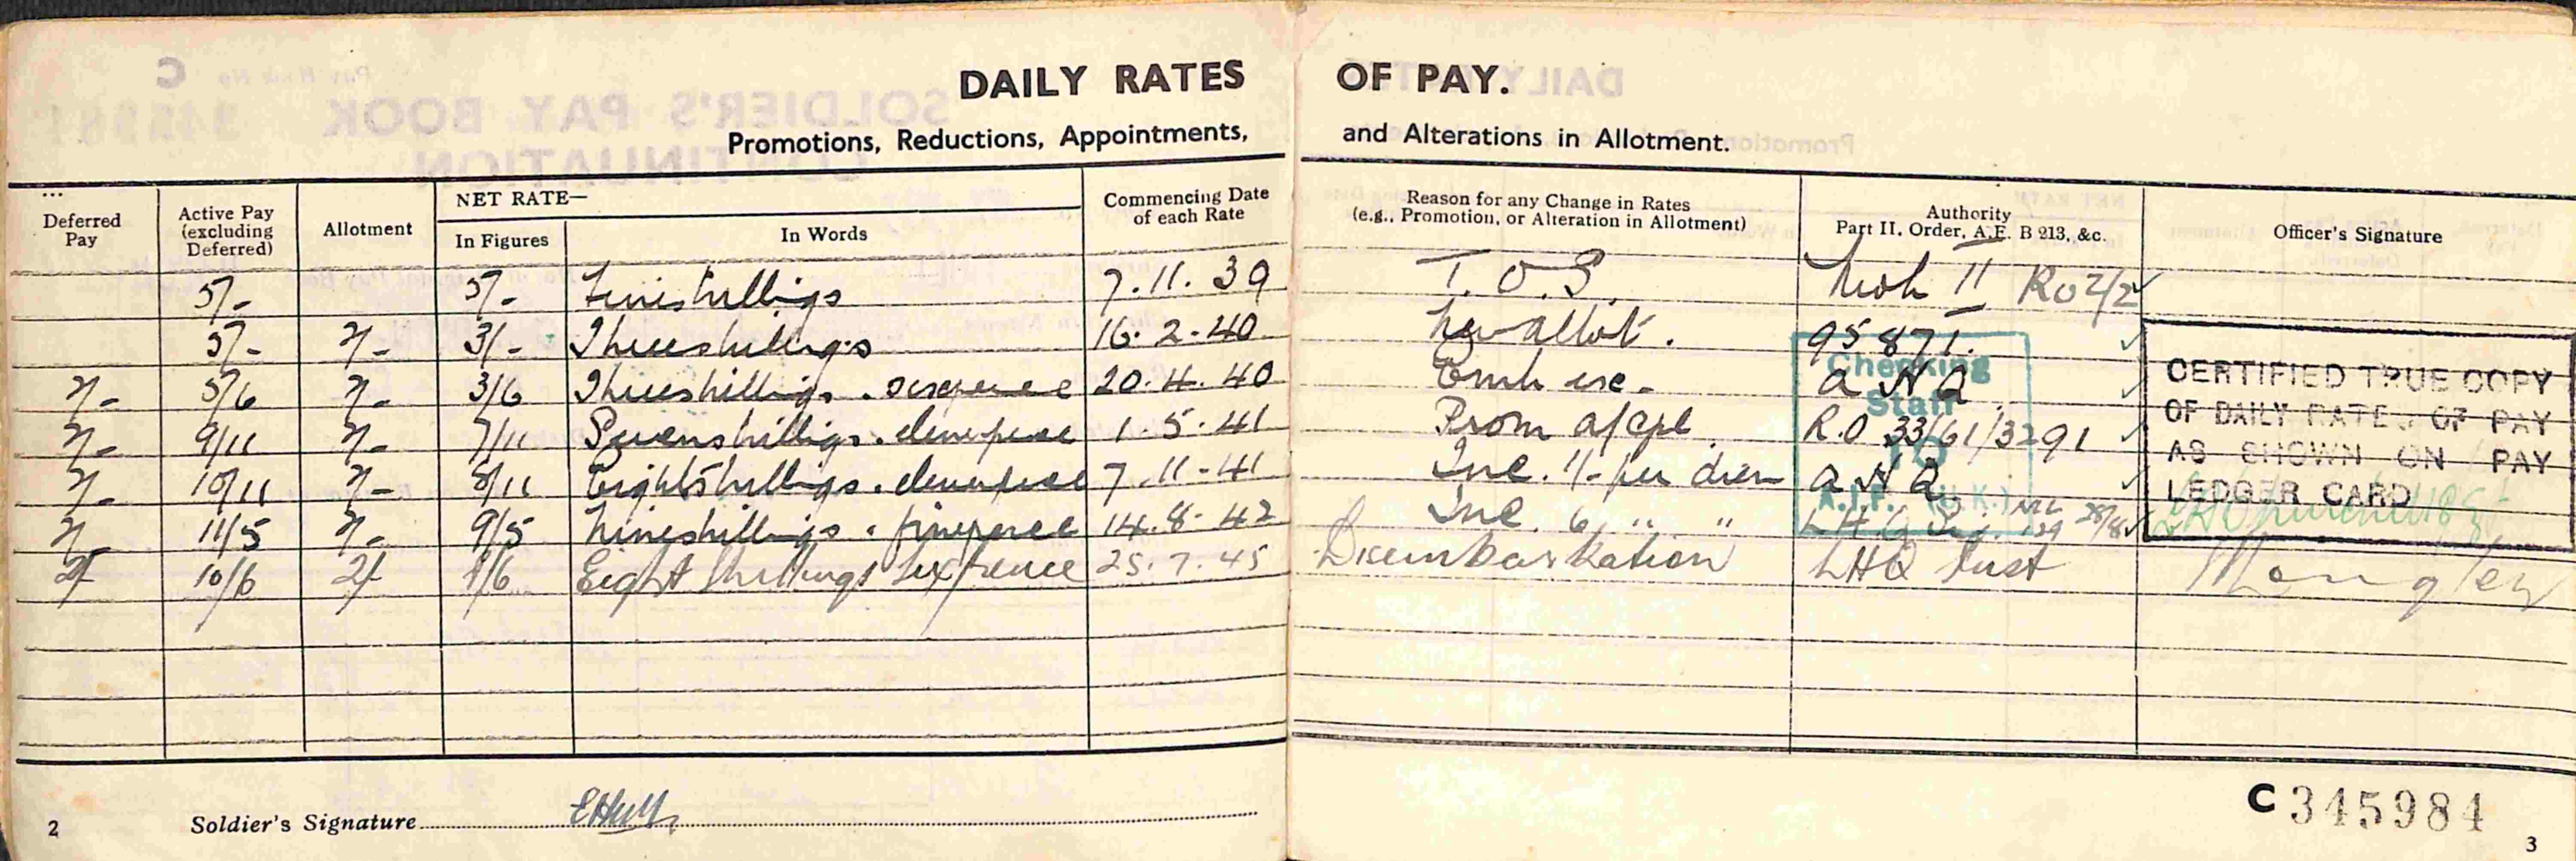 DAILY RATES OF PAY.
Promotions, Reductions, Appointments, and Alterations in Allotment.
Deferred Pay
Active Pay (excluding Deferred)
Allotment
NET RATE—
In Figures
In Words
Commencing Date of each Rate
Reason for any Change in Rates (e.g., Promotion, or Alteration in Allotment)
Authority Part II. Order, A.F. B 213, &c.
Officer's Signature
5/- 5/- Five shillings 7.11.39 T.O.S. II RO 2/2
5/- 2/- 3/- Three shillings 16.2.40 New allot. 95871.
2/- 5/6 2/- 3/6 Three shillings . sixpence 20.4.40 Emb inc. A H Q
2/- 9/11 2/- 7/11 Seven shillings . elevenpence 1.5.41 Prom a/cpl. R.O 33/61/3291
2/- 10/11 2/- 8/11 Eight shillings . elevenpence 7.11-41 Inc. 1/- per diem A H Q
2/- 11/5 2/- 9/5 Nine shillings . fivepence 14.8.42 Inc. 6 " " 28/8
2/- 10/6 2/- 8/6 Eight shillings sixpence 25.7.45 Disembarkation LHQ Inst
Checking
Staff
A.I.F. (U.K.)
CERTIFIED TRUE COPY
OF DAILY RATES OF PAY
AS SHOWN ON PAY
LEDGER CARD
Langley
Soldier's Signature EHull
C 345984
2
3